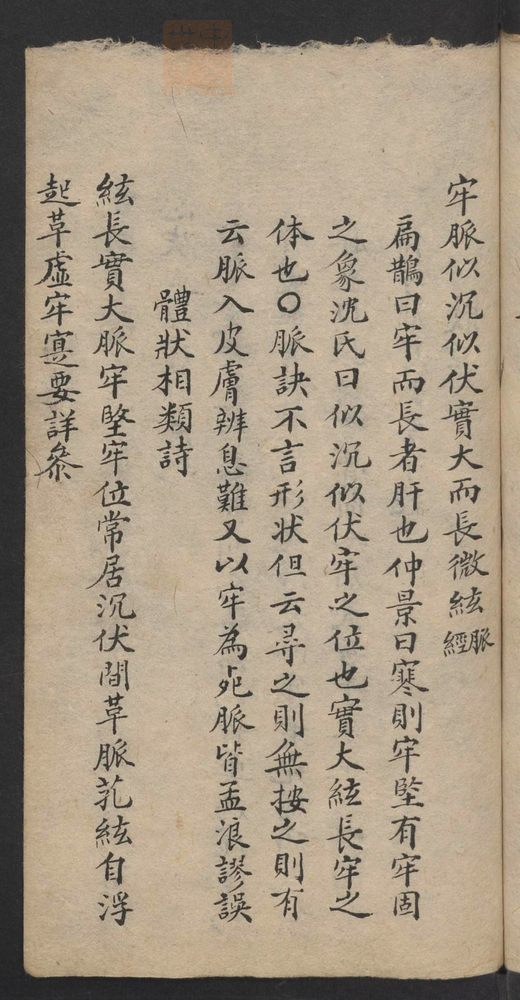 牢脈似沉似伏實大而長微絃脈經
扁鵲曰牢而長者肝也仲景曰寒則牢堅有牢固
之象沈氏曰似沉似伏牢之位也實大絃長牢之
体也〇脈訣不言形状但云尋之則無按之則有
云脈入皮膚辨息難又以牢為死脈皆孟浪謬誤
體狀相類詩
絃長實大脈牢堅牢位常居沉伏間革脈芤絃自浮
起革虛牢寔要詳叅